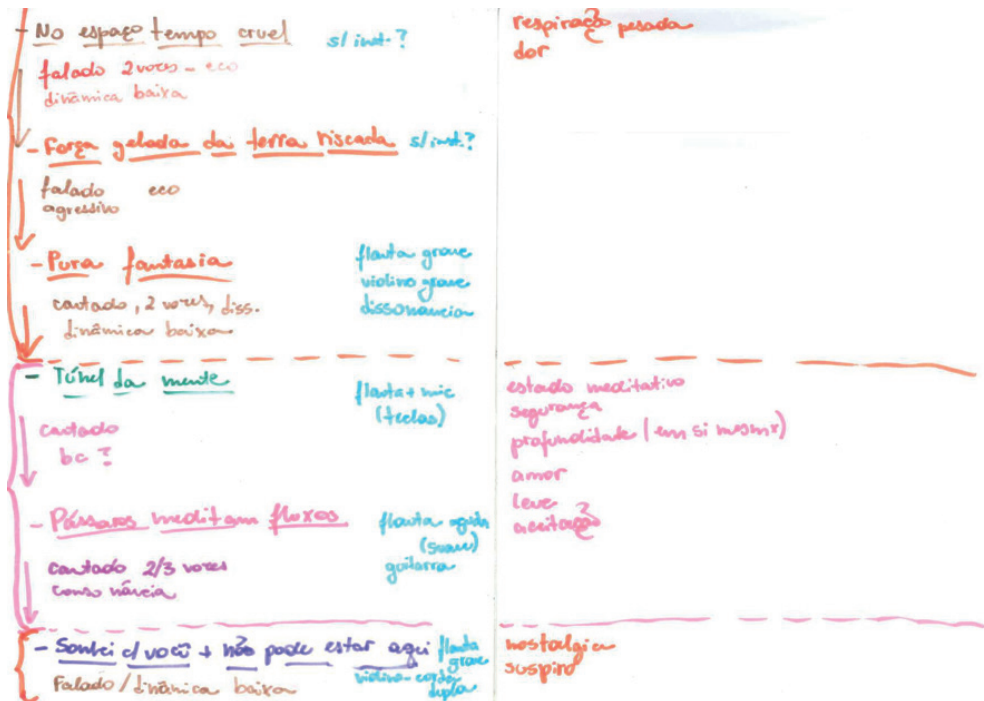 - No espaço tempo cruel s/ inst.?
falado 2 vozes - eco
dinâmica baixa
- Força gelada da terra riscada s/ inst.?
falado eco
agressivo
- Pura fantasia
cantado, 2 vozes, diss.
dinâmica baixa
flauta grave
violino grave
dissonância
- Túnel da mente
cantado
bc ?
flauta + mic
(teclas)
- Pássaros meditam fluxos
cantado 2/3 vozes
consonância
flauta aguda
(suave)
guitarra
- Sonhei c/ você + não pode estar aqui
Falado / dinâmica baixa
flauta
grave
violino - corda
dupla
respiração pesada
dor
estado meditativo
segurança
profundidade (em si mesmx)
amor
leve
aceitação
nostalgia
suspiro